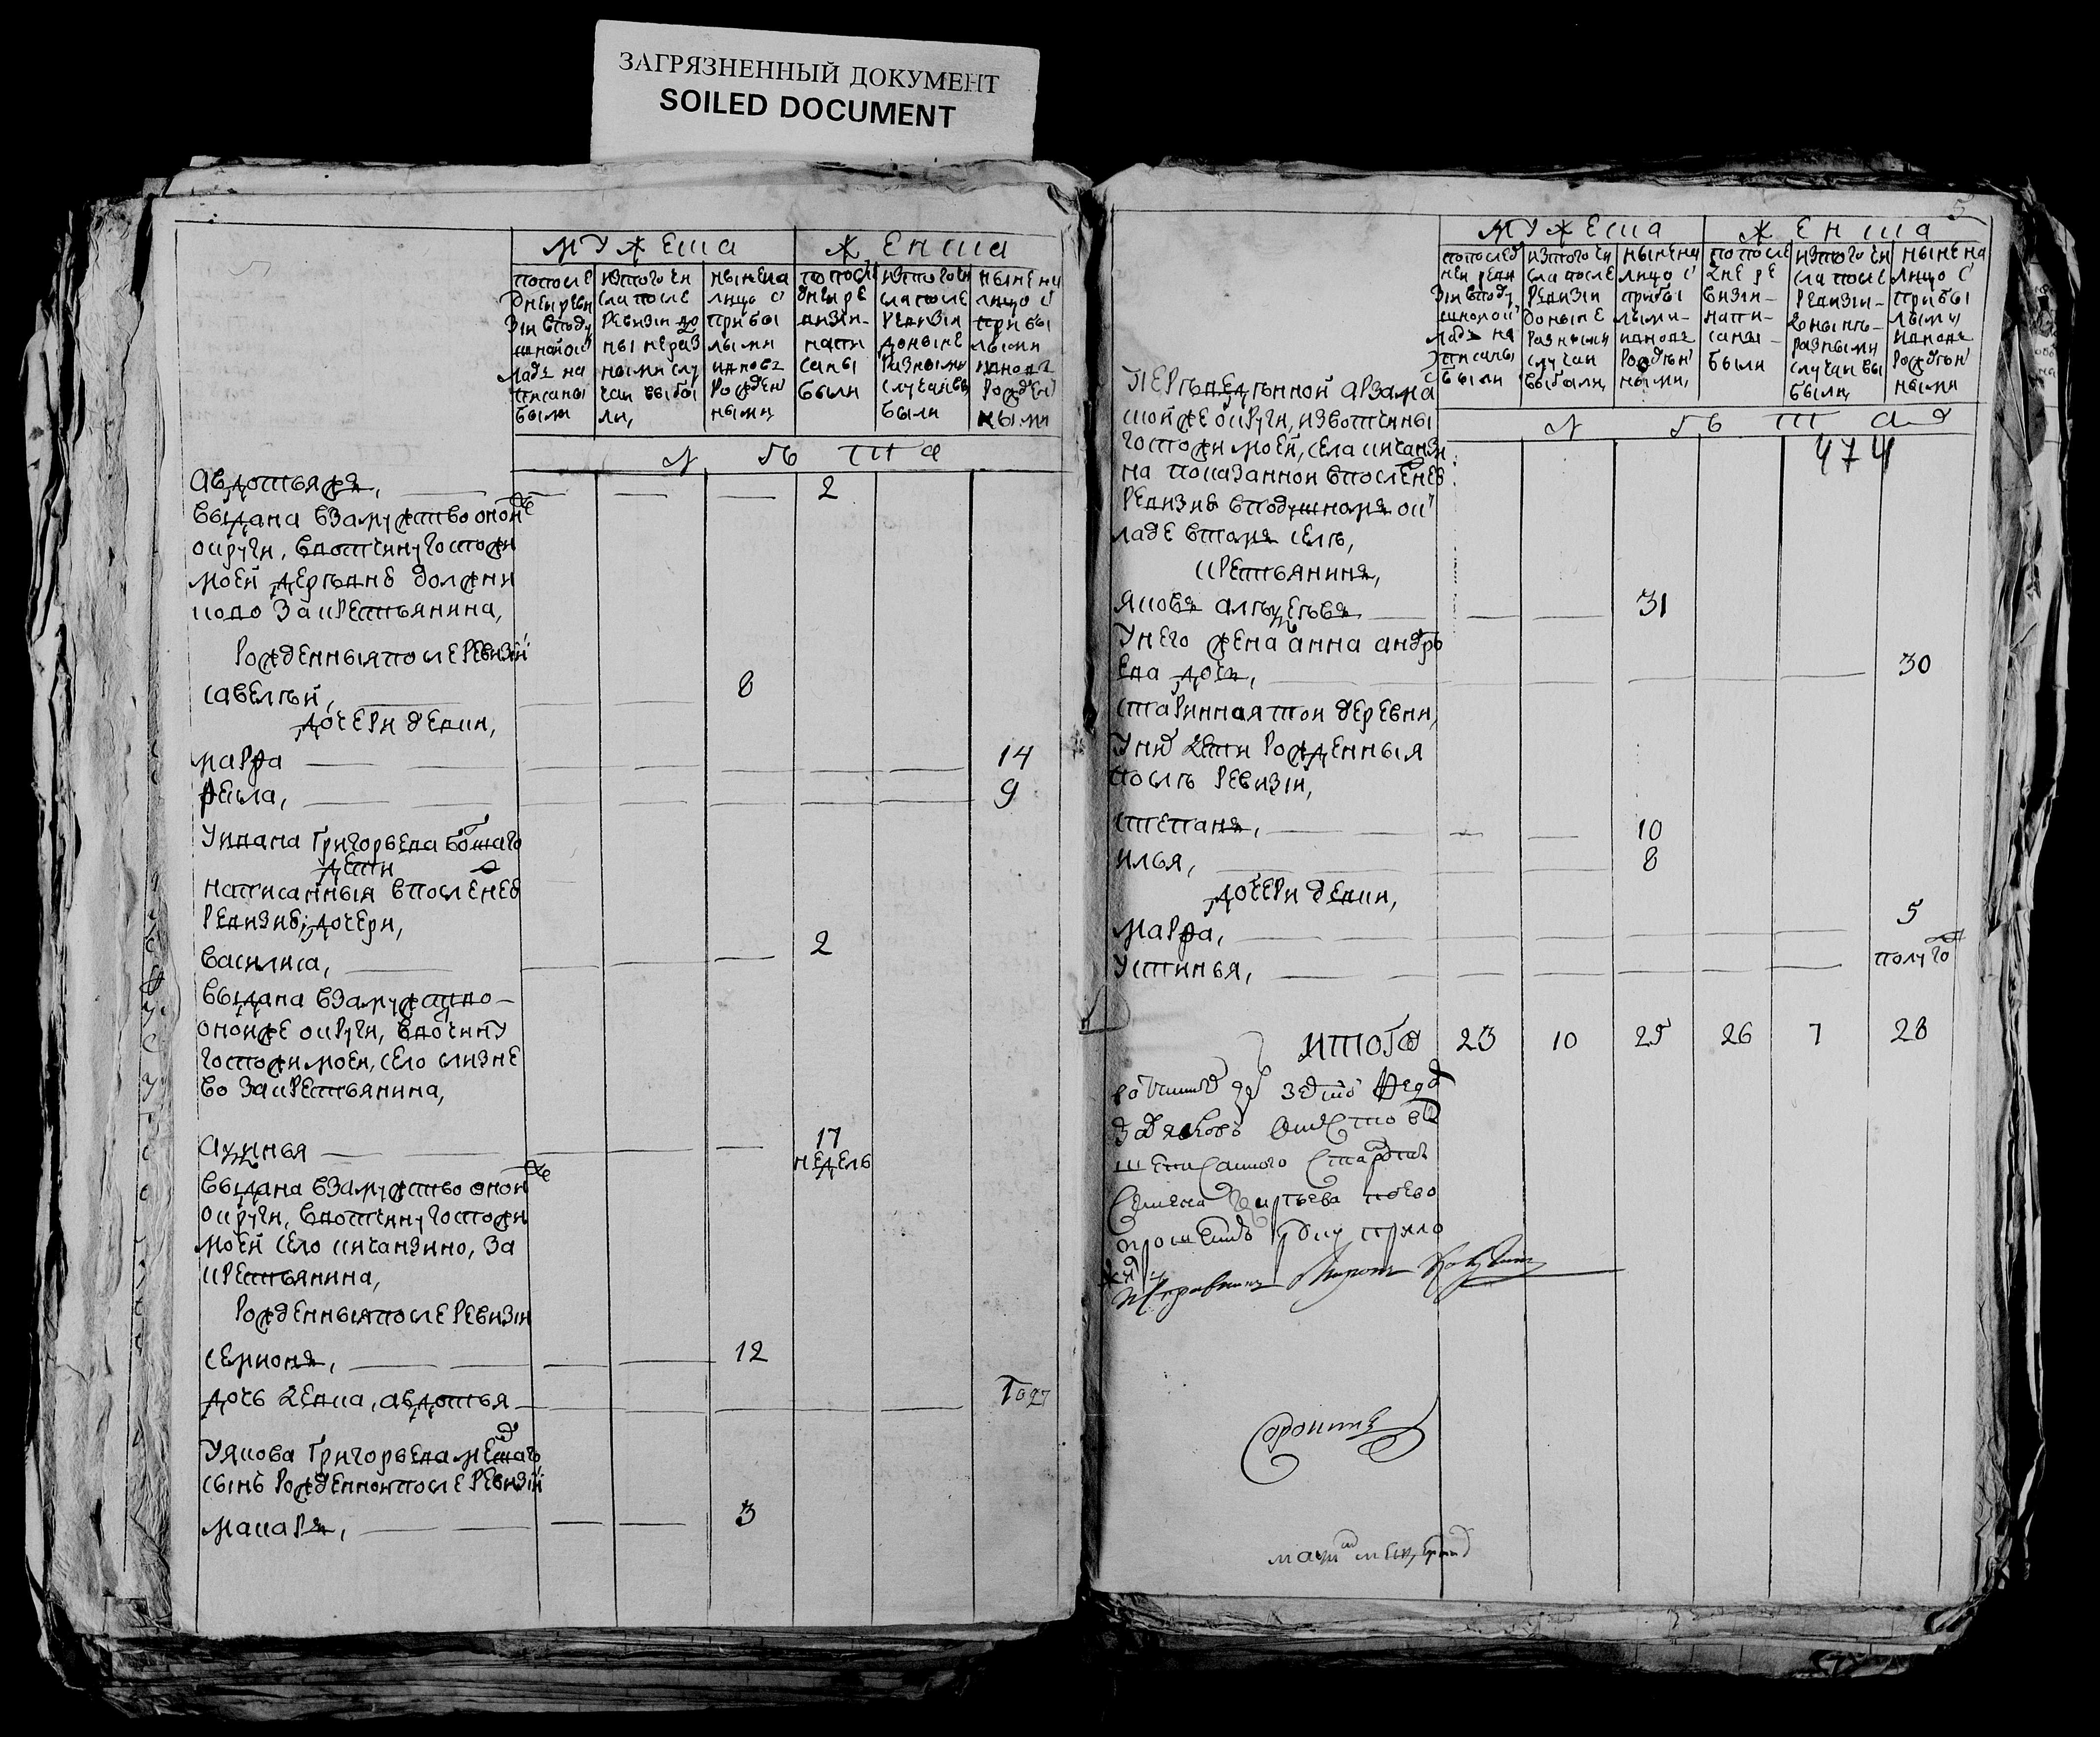 ЗАГРЯЗНЕННЫЙ ДОКУМЕНТ
SOILED DOCUMENT
МУЖЕСКА
ЖЕНСКА
по после
дней реви
зiи в поду
шной ок
ладъ на
писаны
были
из того чи
сла после
ревизiи до
ны не раз
ными слу
чаи выбы
ли,
ныне на
лицо с
прибы
лыми
и вновъ
рожден
ными
по посл
дней ре
визiи
напи
саны
были
из того чи
сла после
ревизiи
доныне
разными
случаи вы
были
ныне на
лицо с
прибы
лыми
и вновъ
рожден
ными
Л ѣ т а
Авдотья же, 2
выдана взамужство оной же
округи, в вотчину госпожи
моей деревню Должни
ково за крестьянина,
рожденныя после ревизiи
Савелей, 8
дочери девки,
Марфа 14
Фекла, 9
У Ивана Григорьева болшаго
дети
написанныя в последней
ревизiи, дочери,
Василиса, 2
выдана взамужство
оной же округи, в вотчину
госпожи моей, село Слизне
во за крестьянина,
Аксинья 17
недель
выдана взамужство оной же
округи, в вотчину госпожи
моей село Кичанзино, за
крестьянина,
рожденныя после ревизiи
Семионъ, 12
дочь девка, Авдотья 1 годъ
У Якова Григорьева меншаго
сынъ рожденной после ревизiи
Макаръ, 3
5
МУЖЕСКА
ЖЕНСКА
по послед
ней реви
зiи в поду
шной ок
ладъ на
писаны
были
из того чи
сла после
ревизiи
доныне
разными
случаи
выбыли,
ныне на
лицо с
прибы
лыми
и вновъ
рожден
ными,
по после
дне ре
визiи
напи
саны
были
из того чи
сла после
ревизiи
доныне
разными
случаи вы
были,
ныне на
лицо с
прибы
лыми
и вновъ
рожден
ными
Л ѣ т а
474
Переведенной Арзама
ской же округи, из вотчины
госпожи моей, села Кичанзи
на показанной в последней
ревизiи в подушномъ ок
ладе в томъ селе,
крестьянинъ,
Яковъ Алексеевъ 31
У него жена Анна Андре
ева дочь, 30
старинная той деревни,
У них дети рожденныя
после ревизiи,
Степанъ, 10
Илья, 8
дочери девки,
Марфа, 5
Устинья, полуго
Итого 23 10 25 26 7 28